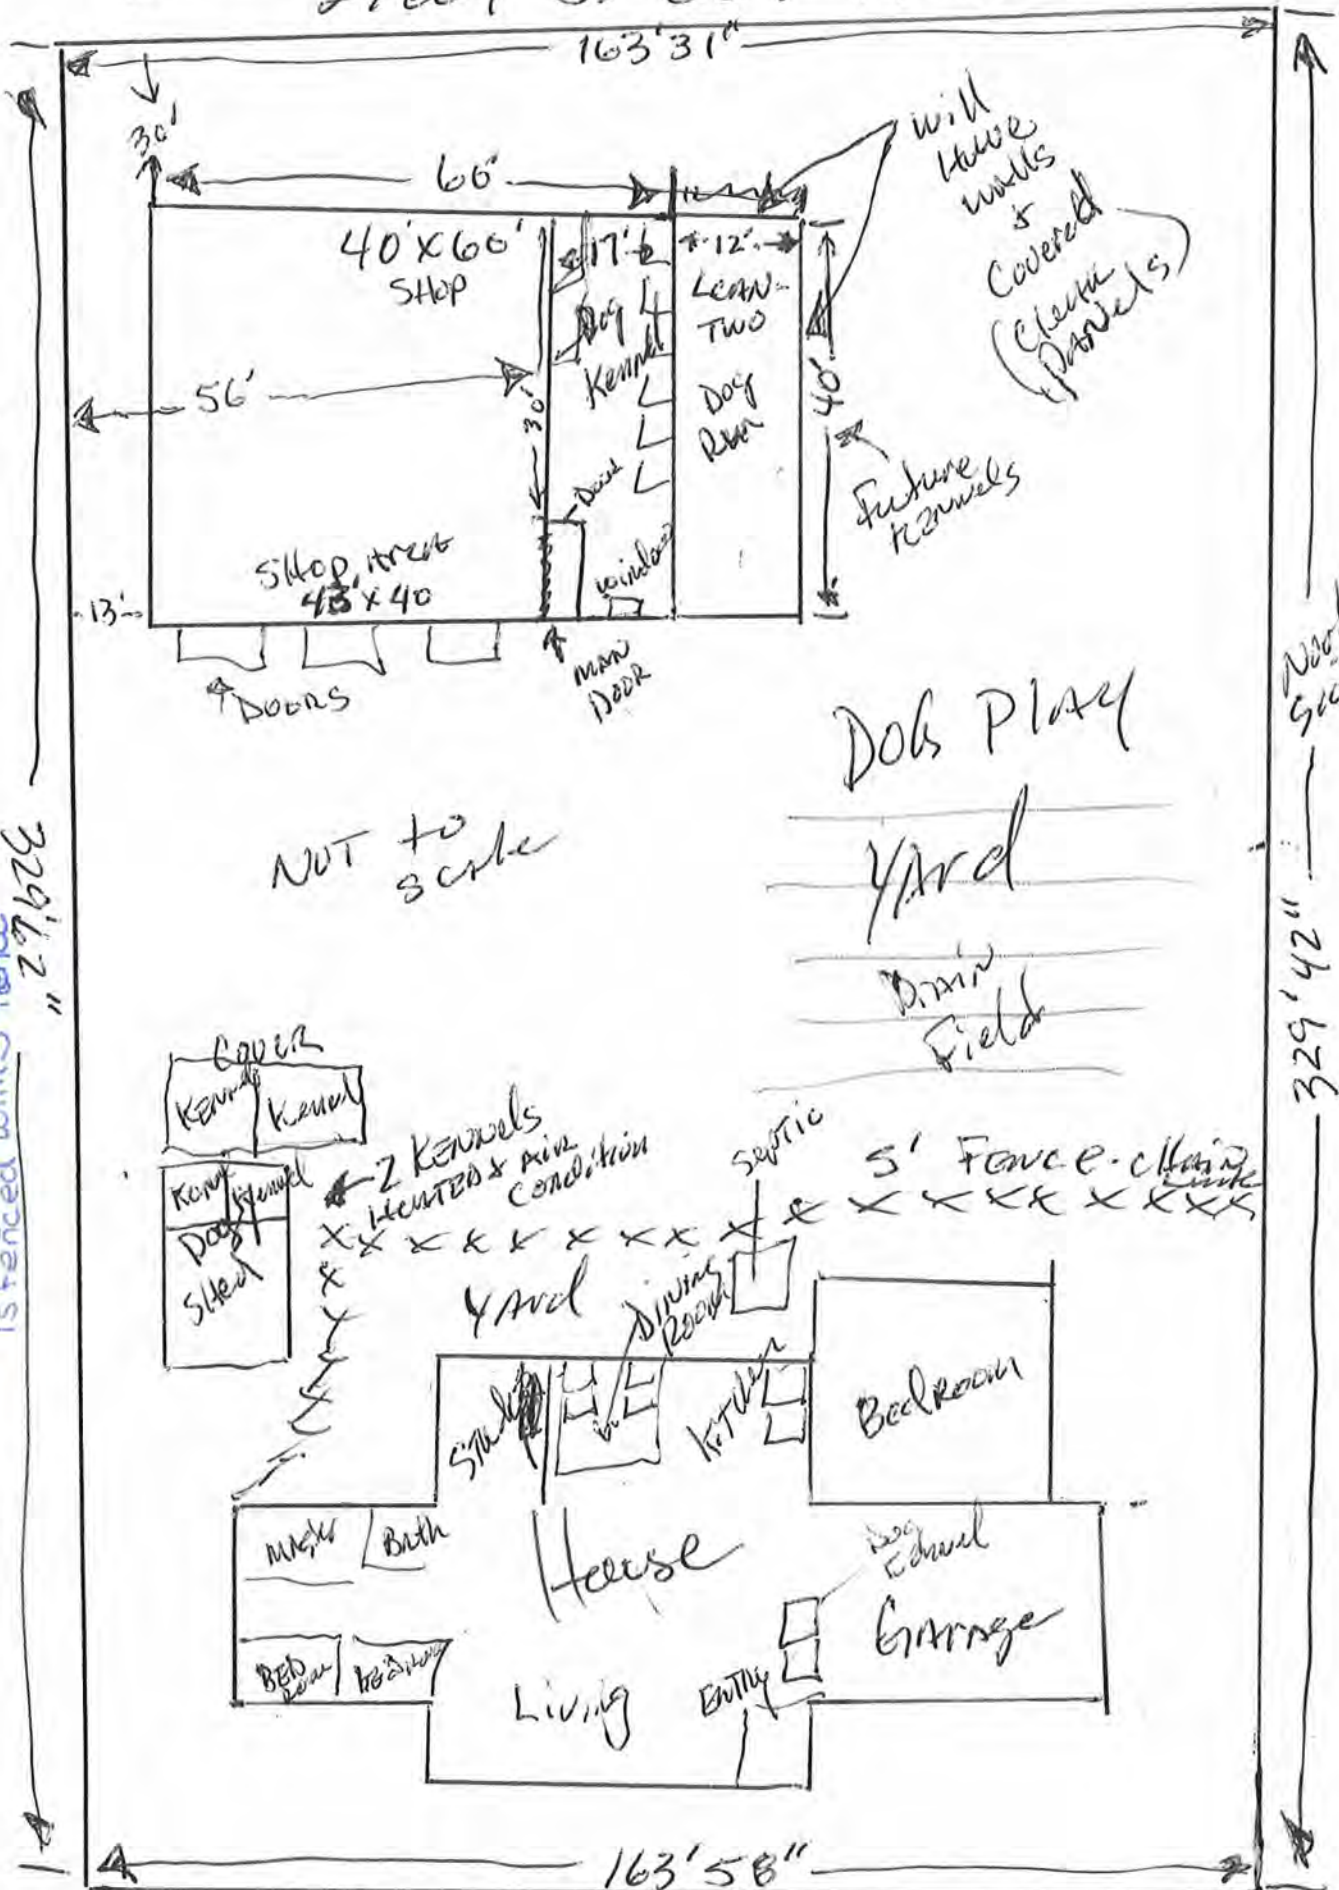 163'31"
30'
60'
12'
will
Have
walls
&
Covered
(Clear
PANels)
40'X60'
SHop
17'
12'
LEAN-
TWO
Dog
Kennel
Dog
Run
56'
30'
40'
Future
Kennels
Door
window
SHop Area
43'X40
13'
DOORS
MAN
DOOR
DOG PlAY
YArd
DrAiN
Field
NOT to
scale
329'62"
is fenced
329'42"
COVER
Kennel
Kennel
Kennel
Dog
SHed
2 KENNels
HeATED & Air
Condition
septic
5' Fence-cHain
Link
X X X X X X X X X X X X X X X X
YArd
DiNiNg
ROOM
Study
KiTcHen
BedRoom
House
Bath
BED
Room
Dog
Kennel
GArAge
Living
ENTRy
163'58"